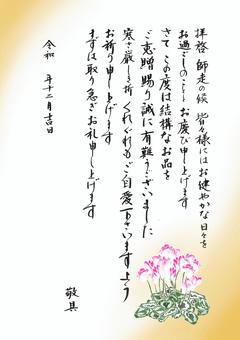 拝啓 師走の候 皆々様にはお健やかな日々を
お過ごしのことと お慶び申し上げます
さて この度は結構なお品を
ご恵贈賜り誠に有難うございました
寒さ厳しき折 くれぐれもご自愛下さいますよう
お祈り申し上げます
まずは取り急ぎお礼申し上げます
敬具
令和 年十二月吉日